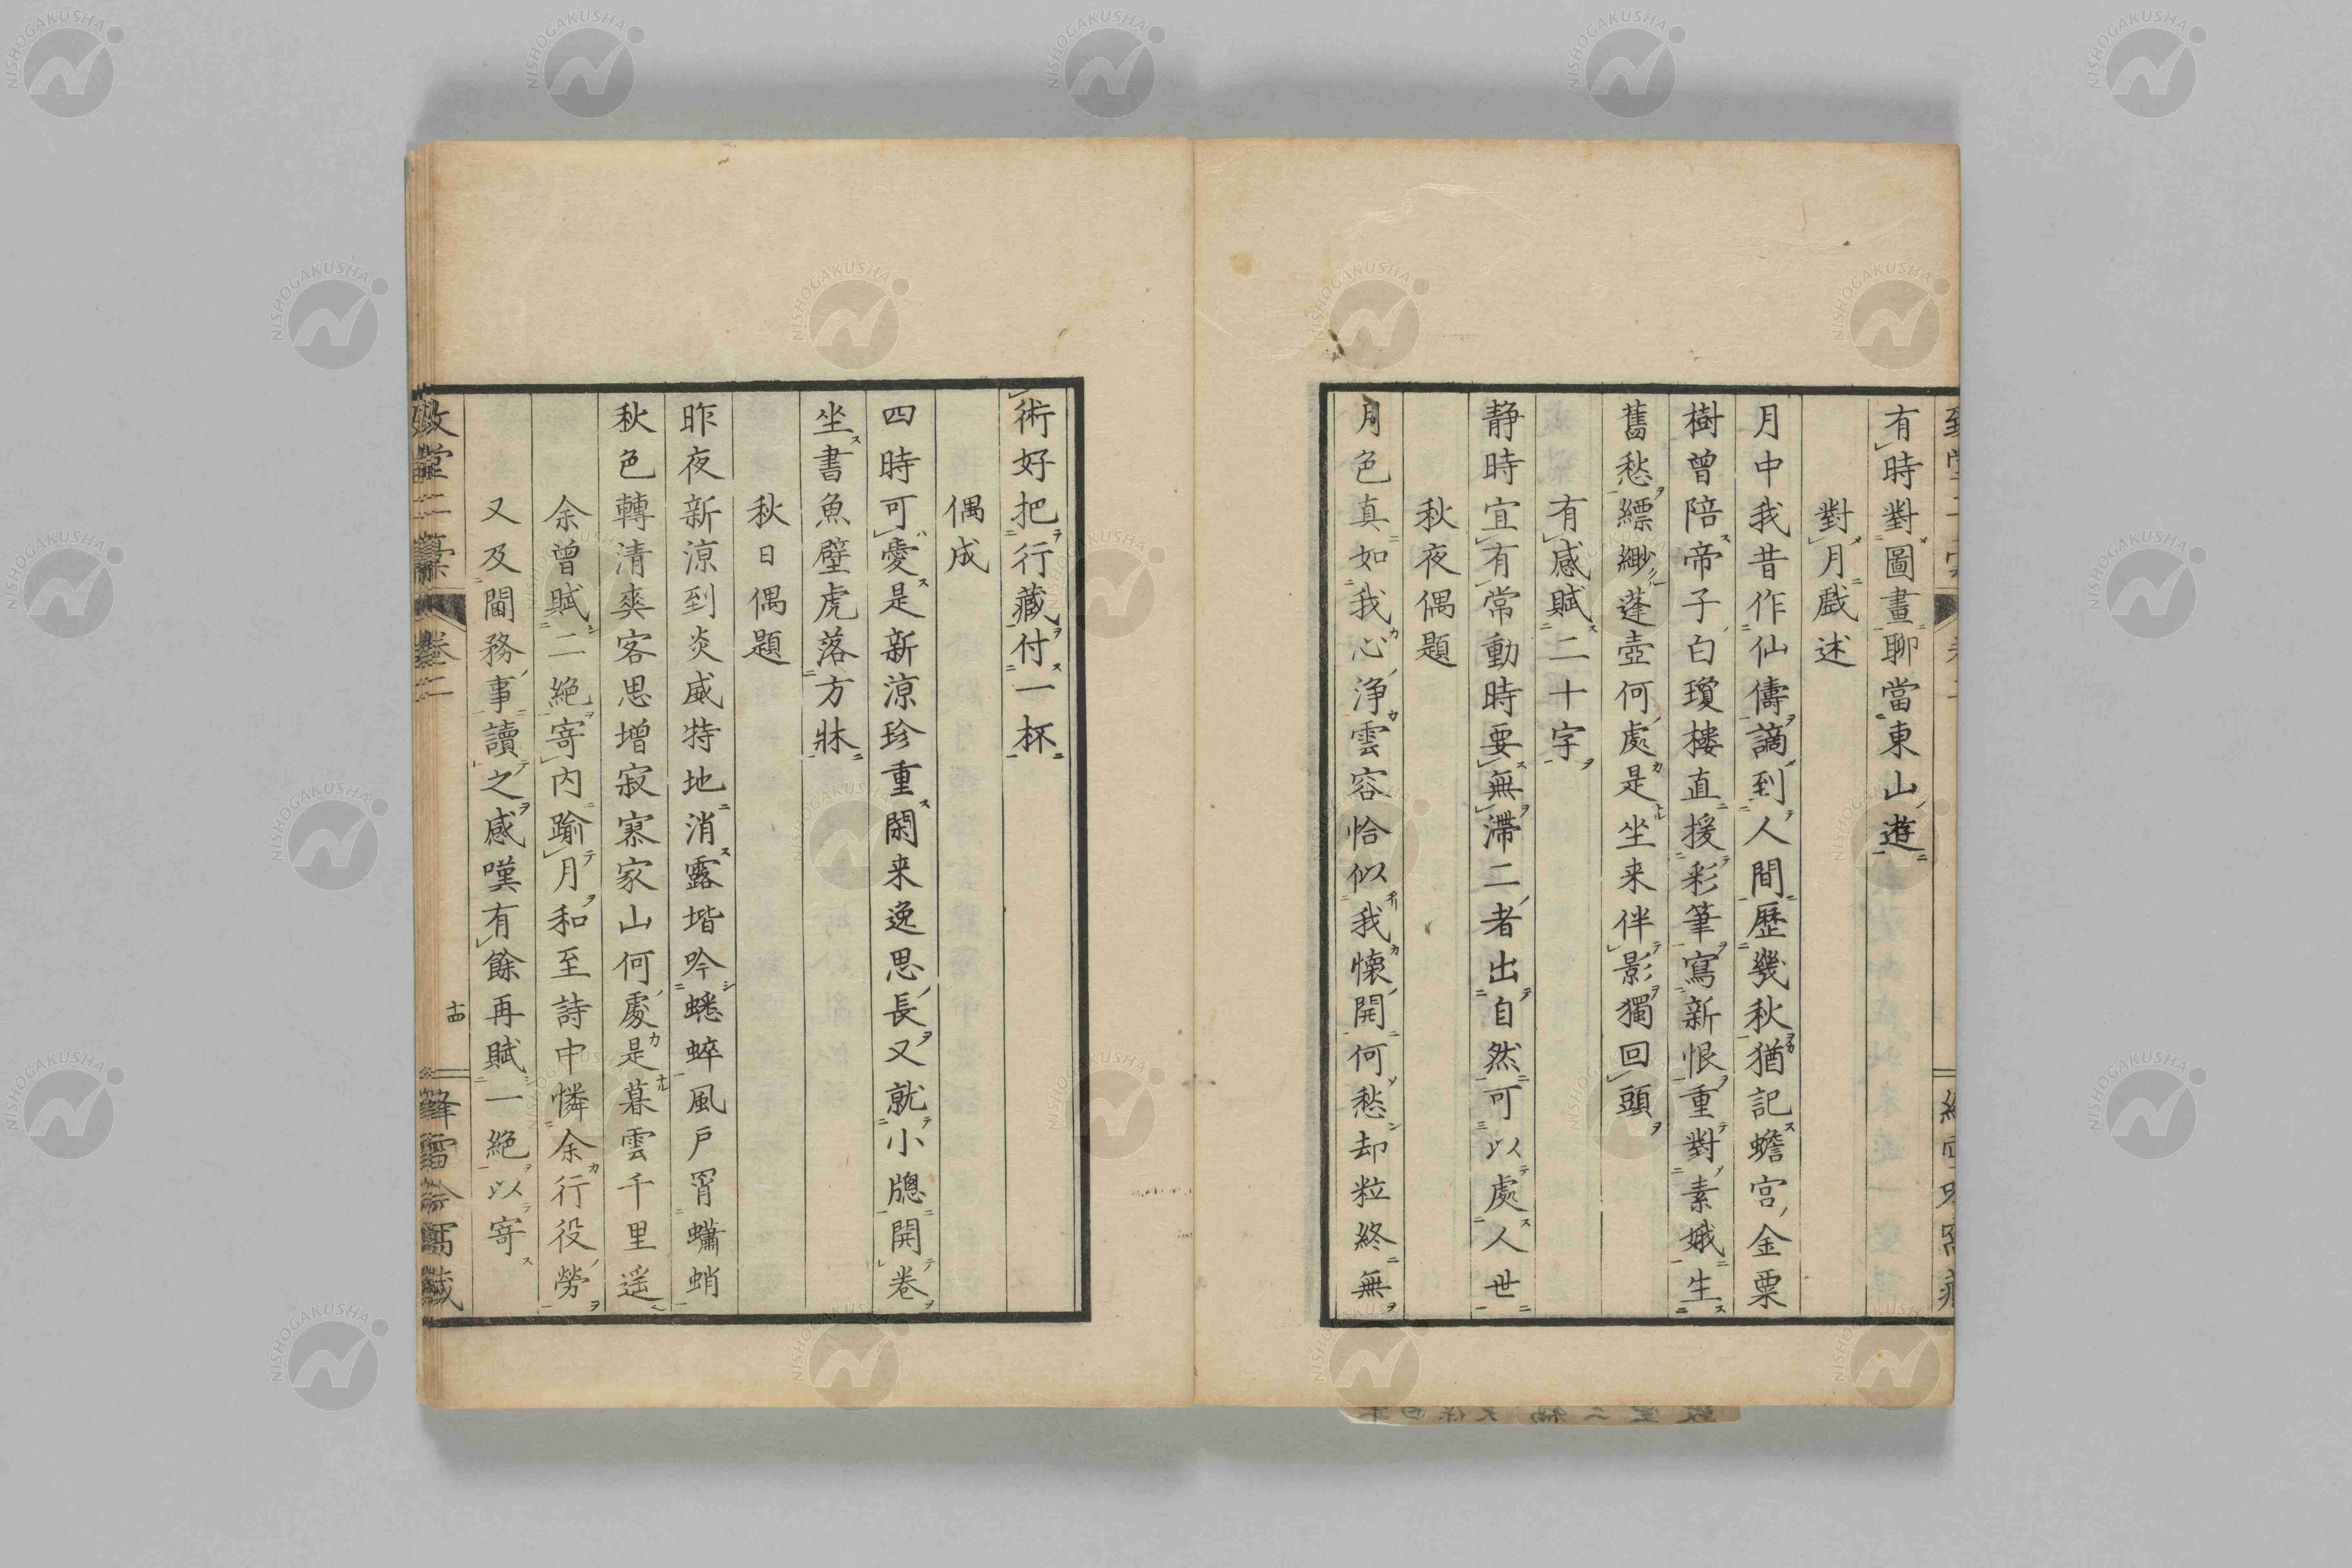 有時對圖畫聊當東山遊
對月戲述
月中我昔作仙儔謫到人間歷幾秋猶記蟾宮金粟
樹曾陪帝子白瓊樓直援彩筆寫新恨重對素娥生
舊愁縹緲蓬壺何處是坐来伴影獨回頭
有感賦二十字
静時宜有常動時要無滯二者出自然可以處人世
秋夜偶題
月色真如我心淨雲容恰似我懷開何愁却粒終無
術好把行藏付一杯
偶成
四時可愛是新涼珍重閑来逸思長又就小牕開卷
坐書魚壁虎落方牀
秋日偶題
昨夜新涼到炎威特地消露堦吟蟋蟀風戶罥蠨蛸
秋色轉清爽客思增寂寥家山何處是暮雲千里遥
余曾賦二絶寄内踰月和至詩中憐余行役勞
又及閫務事讀之感嘆有餘再賦一絶以寄
卷二
十四
NISHOGAKUSHA